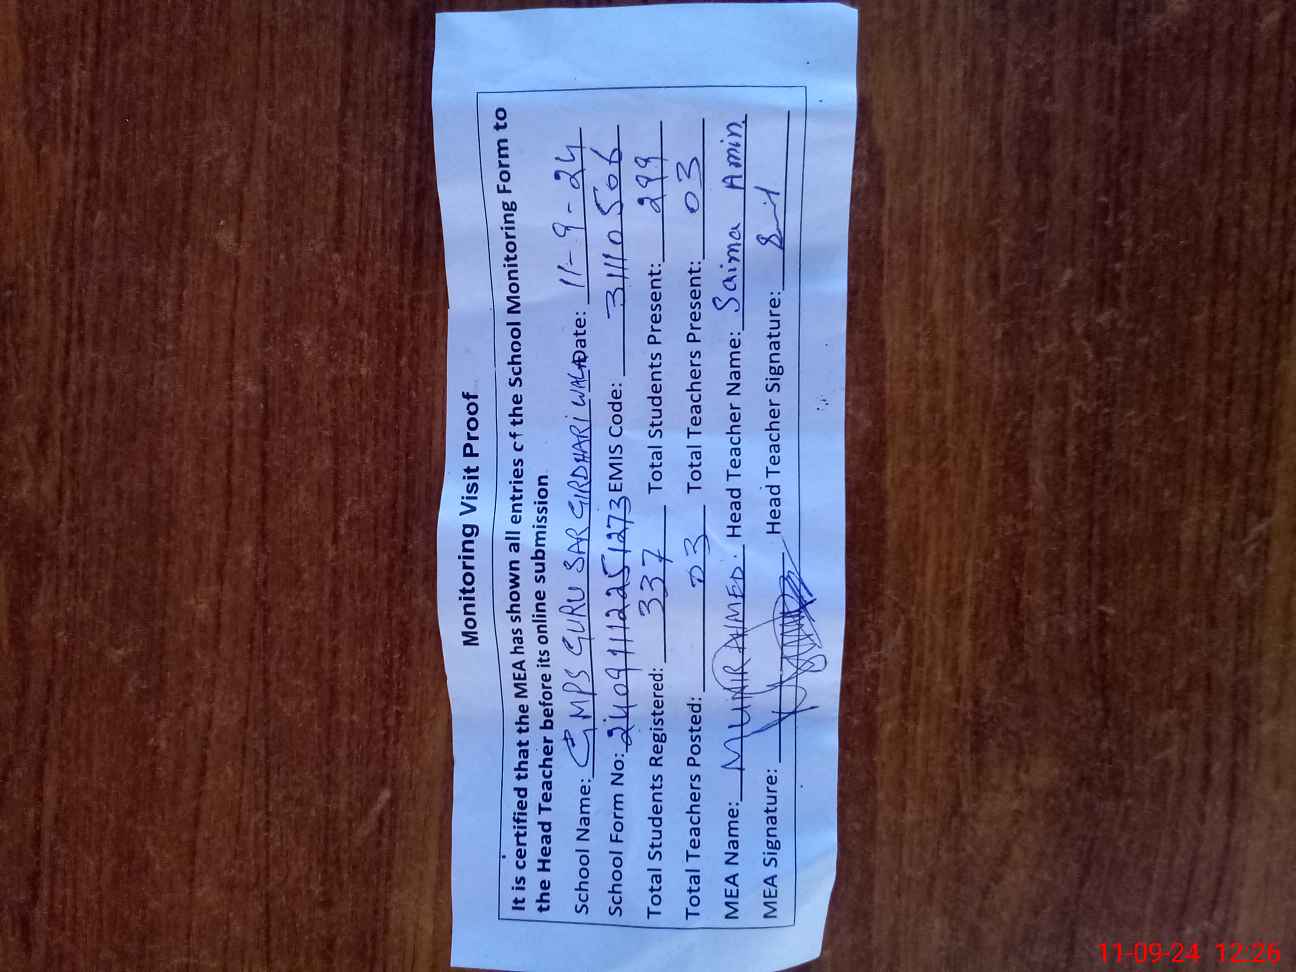 Monitoring Visit Proof
It is certified that the MEA has shown all entries of the School Monitoring Form to
the Head Teacher before its online submission
School Name: GMPS GURU SAR GIRDHARI WALA Date: 11-9-24
School Form No: 24091112251273 EMIS Code: 31110506
Total Students Registered: 337 Total Students Present: 299
Total Teachers Posted: 03 Total Teachers Present: 03
MEA Name: MUNIR AHMED. Head Teacher Name: Saima Amin
MEA Signature: Head Teacher Signature:
11-09-24 12:26